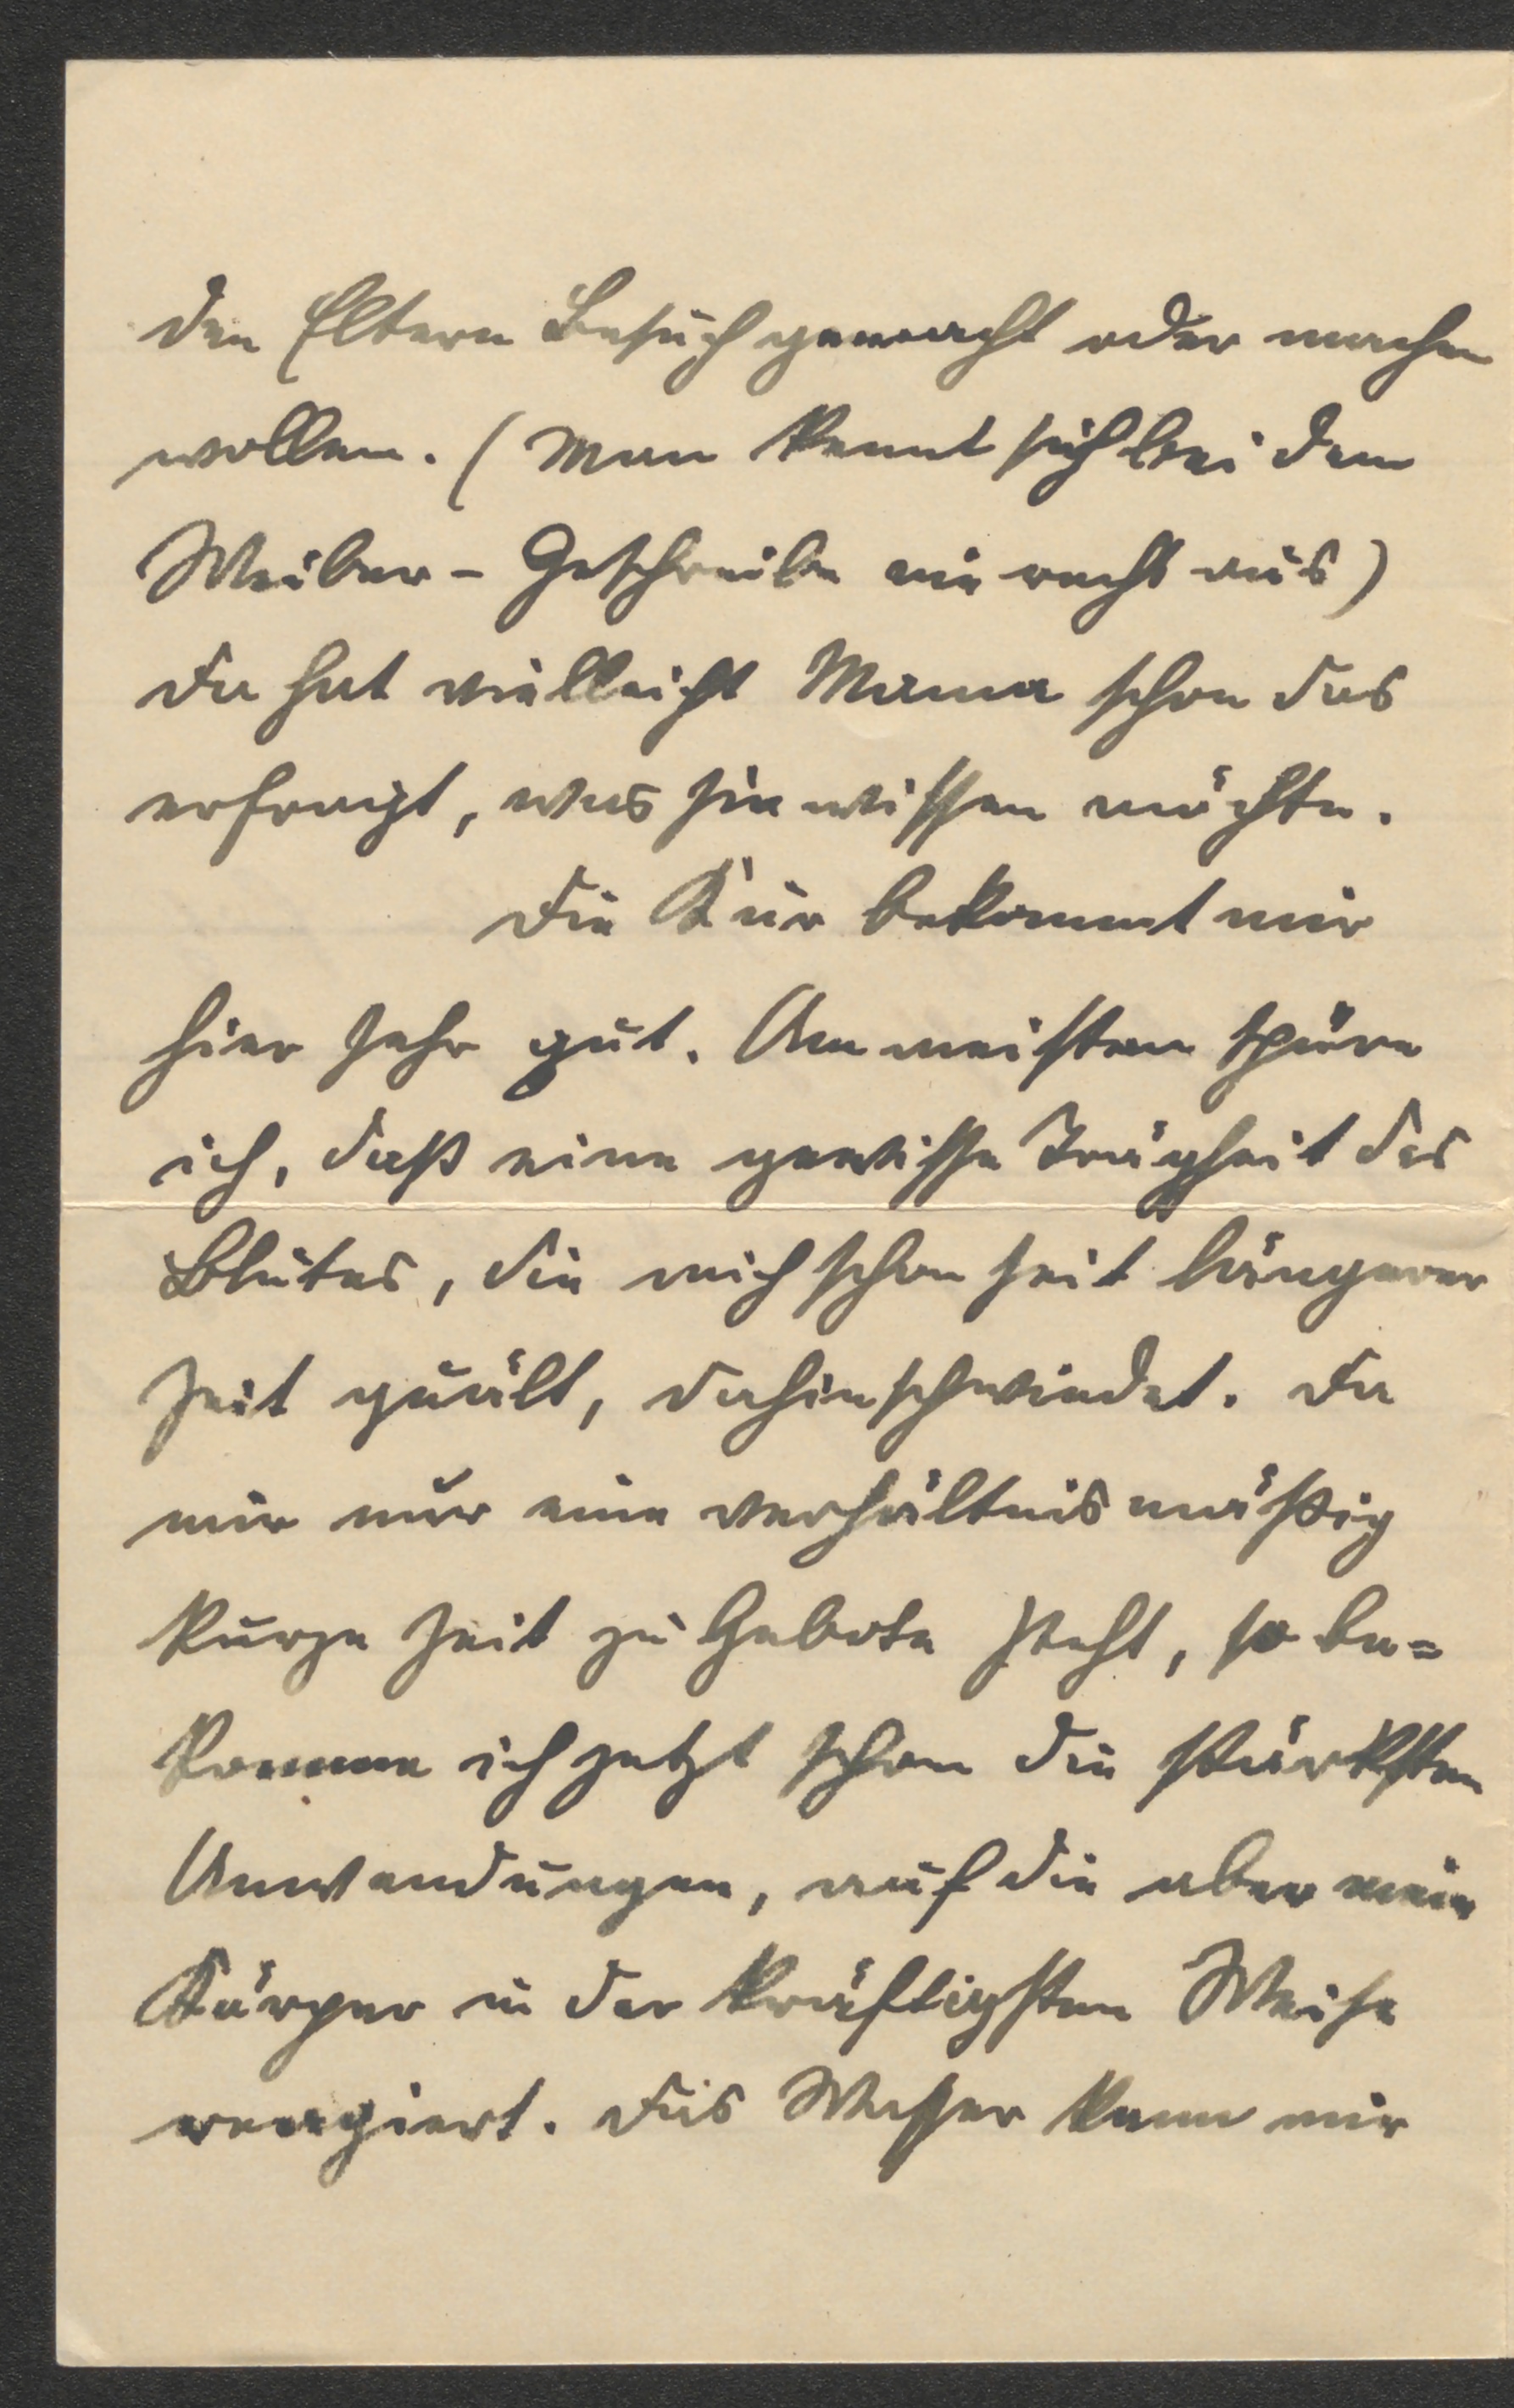 den Eltern Besuch gemacht oder machen
wollen. (Man kennt sich bei dem
Weiber-Geschreibe nie recht aus)
Da hat vielleicht Mama schon das
erfragt, was sie wissen möchte.
Die Kur bekommt mir
hier sehr gut. Am meisten spüre
ich, daß eine gewisse Trägheit des
Blutes, die mich schon seit längerer
Zeit quält, dahinschwindet. Da
mir nur eine verhältnismäßig
kurze Zeit zu Gebote steht, so be=
komme ich jetzt schon die stärksten
Anwendungen, auf die aber mein
Körper in der kräftigsten Weise
reagiert. Das Wasser kann mir